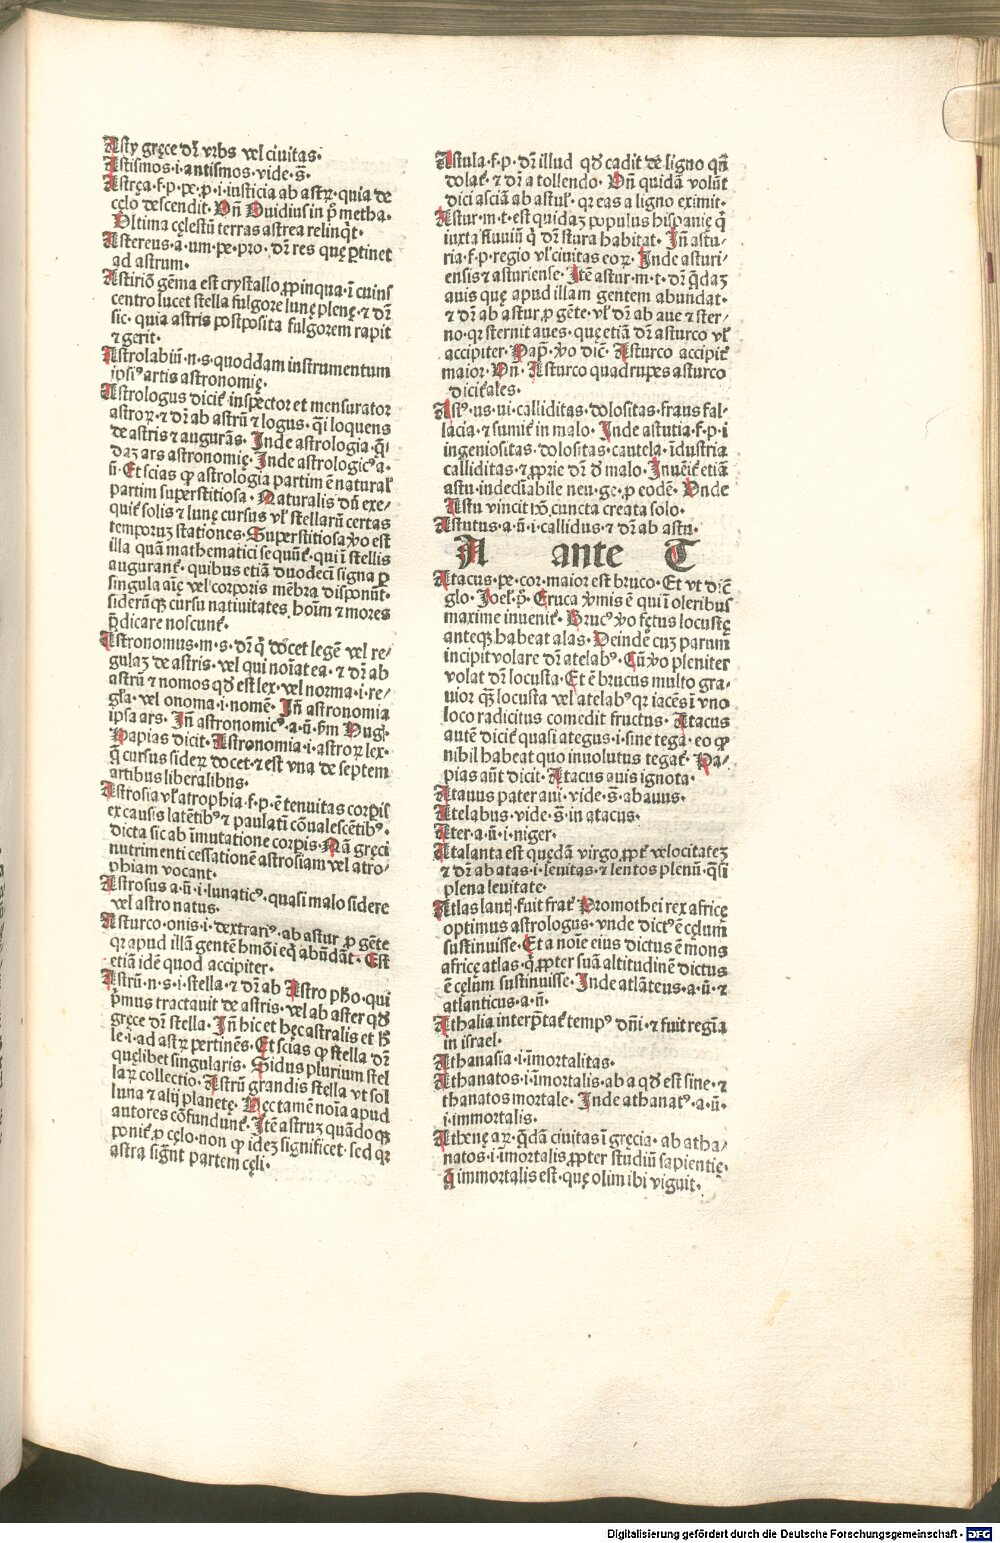 Asty gręce dr̄ vrbs vel ciuitas.
Astismos.i.antismos.vide.s̄.
Astręa.f.p.pe.ꝓ.i.iusticia ab astꝝ.quia de
cęlo descendit.Vñ Ouidius in p̄ metha.
Vltima cęlestū terras astrea relinqͥt.
Astereus.a.um.pe.pro.dr̄ res quę ꝑtinet
ad astrum.
Astiriō gēma est crystallo ꝓpinqua.ī cuius
centro lucet stella fulgore lunę plenę.⁊ dr̄
sic.quia astris postposita fulgorem rapit
⁊ gerit.
Astrolabiū.n.s.quoddam instrumentum
ipsiꝰ artis astronomię.
Astrologus dicit̄ inspector et mensurator
astroꝝ.⁊ dr̄ ab astrū ⁊ logus.q̄i loquens
de astris ⁊ augurās.Inde astrologia.q̄i
daꝫ ars astronomię.Inde astrologicꝰ.a.
ū.Et scias ꝙ astrologia partim ē natural̄
partim superstitiosa.Naturalis dū exe/
quit̄ solis ⁊ lunę cursus vl̄ stellarū certas
temporuꝫ stationes.Superstitiosa ꝟo est
illa quā mathematici sequūt̄.qui ī stellis
augurant̄.quibus etiā duodecī signa ꝑ
singula aīę vel corporis mēbra disponūt.
siderūqꝫ cursu natiuitates hoīm ⁊ mores
p̄dicare noscunt̄.
Astronomus.m.s.dr̄ q̄ docet legē vel re/
gulaꝫ de astris.vel qui noīat ea.⁊ dr̄ ab
astrū ⁊ nomos qđ est lex.vel norma.i.re/
gl̄a.vel onoma.i.nomē.Iñ astronomia
ipsa ars.Iñ astronomicꝰ.a.ū.s̄m Pugl.
Papias dicit.Astronomia.i.astroꝝ lex.
q̄ cursus sideꝝ docet.⁊ est vna de septem
artibus liberalibus.
Astrosia vl̄ atrophia.f.p.ē tenuitas corꝑis
ex causis latētibꝰ ⁊ paulatī cōualescētibꝰ.
dicta sic ab īmutatione corꝑis.Nā gręci
nutrimenti cessationē astrosiam vel atro/
phiam vocant.
Astrosus.a.ū.i.lunaticꝰ.quasi malo sidere
vel astro natus.
Asturco.onis.i.dextrariꝰ.ab astur ꝓ gēte
qꝛ apud illā gentē hmōi eq̄ abūdāt.Est
etiā idē quod accipiter.
Astrū.n.s.i.stella.⁊ dr̄ ab Astro pħo.qui
p̄mus tractauit de astris.vel ab aster qđ
gręce dr̄ stella.Iñ hic et hęc astralis et ħ
le.i.ad astꝝ pertinēs.Et scias ꝙ stella dr̄
quęlibet singularis.Sidus plurium stel
laꝝ collectio.Astrū grandis stella vt sol
luna ⁊ alij planetę.Hęc tamē noīa apud
autores cōfundunt̄.Itē astruꝫ quādoqꝫ
ponit̄ ꝓ cęlo.non ꝙ ideꝫ significet.sed qꝛ
astra sigūt partem cęli.
Astula.f.p.dr̄ illud qđ cadit de ligno qn̄
dolat̄.⁊ dr̄ a tollendo.Vñ quidā volūt
dici asciā ab astul̄.qꝛ eas a ligno eximit.
Astur.m.t.est quidaꝫ populus hispanię q̄
iuxta fluuiū q̄ dr̄ stura habitat.Iñ astu/
ria.f.p.regio vl̄ ciuitas eoꝝ.Inde asturi/
ensis ⁊ asturiense.Itē astur.m.t.dr̄ q̄daꝫ
auis quę apud illam gentem abundat.
⁊ dr̄ ab astur ꝓ gēte.vl̄ dr̄ ab aue ⁊ ster/
no.qꝛ sternit aues.quę etiā dr̄ asturco vl̄
accipiter.Pap̄.ꝟo dic̄.Asturco accipit̄
maior.Vñ.Asturco quadrupes asturco
dicit̄ ales.
Astꝰ.us.ui.calliditas.dolositas.fraus fal/
lacia.⁊ sumit̄ in malo.Inde astutia.f.p.i
ingeniositas.dolositas.cautela.īdustria
calliditas.⁊ ꝓprie dr̄ đ malo.Inueīt̄ etiā
astu.indecl̄iabile neu.ge.ꝓ eodē.Vnde
Astu vincit hō cuncta creata solo.
Astutus.a.ū.i.callidus.⁊ dr̄ ab astu.
A ante T
Atacus.pe.cor.maior est bruco.Et vt dic̄
glo.Joel.p̄.Eruca ꝟmis ē qui ī oleribus
maxime inuenit̄.Brucꝰ ꝟo fętus locustę
anteqꝫ habeat alas.Deinde cuꝫ parum
incipit volare dr̄ atelabꝰ.Cū ꝟo pleniter
volat dr̄ locusta.Et ē brucus multo gra/
uior qꝫ locusta vel atelabꝰ qꝛ iacēs ī vno
loco radicitus comedit fructus.Atacus
autē dicit̄ quasi ategus.i.sine tega.eo ꝙ
nihil habeat quo inuolutus tegat̄.Pa/
pias aūt dicit.Atacus auis ignota.
Atauus pater aui.vide.s̄.abauus.
Atelabus.vide.s̄.in atacus.
Ater.a.ū.i.niger.
Atalanta est quędā virgo.ꝓpt̄ velocitateꝫ
⁊ dr̄ ab atas.i.leuitas.⁊ lentos plenū.q̄si
plena leuitate.
Atlas lant̄.fuit frat̄ Promothei rex africę
optimus astrologus.vnde dictꝰ ē cęlum
sustinuisse.Et a noīe eius dictus ē mons
africę atlas.q̄ ꝓpter suā altitudinē dictus
ē cęlum sustinuisse.Inde atlāteus.a.ū.⁊
atlanticus.a.ū.
Athalia interp̄tat̄ tempꝰ dn̄i.⁊ fuit regīa
in israel.
Athanasia.i.īmortalitas.
Athanatos.i.īmortalis.ab a qđ est sine.⁊
thanatos mortale.Inde athanatꝰ.a.ū.
i.immortalis.
Athenę aꝝ.q̄dā ciuitas ī gręcia.ab atha/
natos.i.īmortalis.ꝓpter studiū sapientię.
q̄ immortalis est.quę olim ibi viguit.
Digitalisierung gefördert durch die Deutsche Forschungsgemeinschaft - DFG